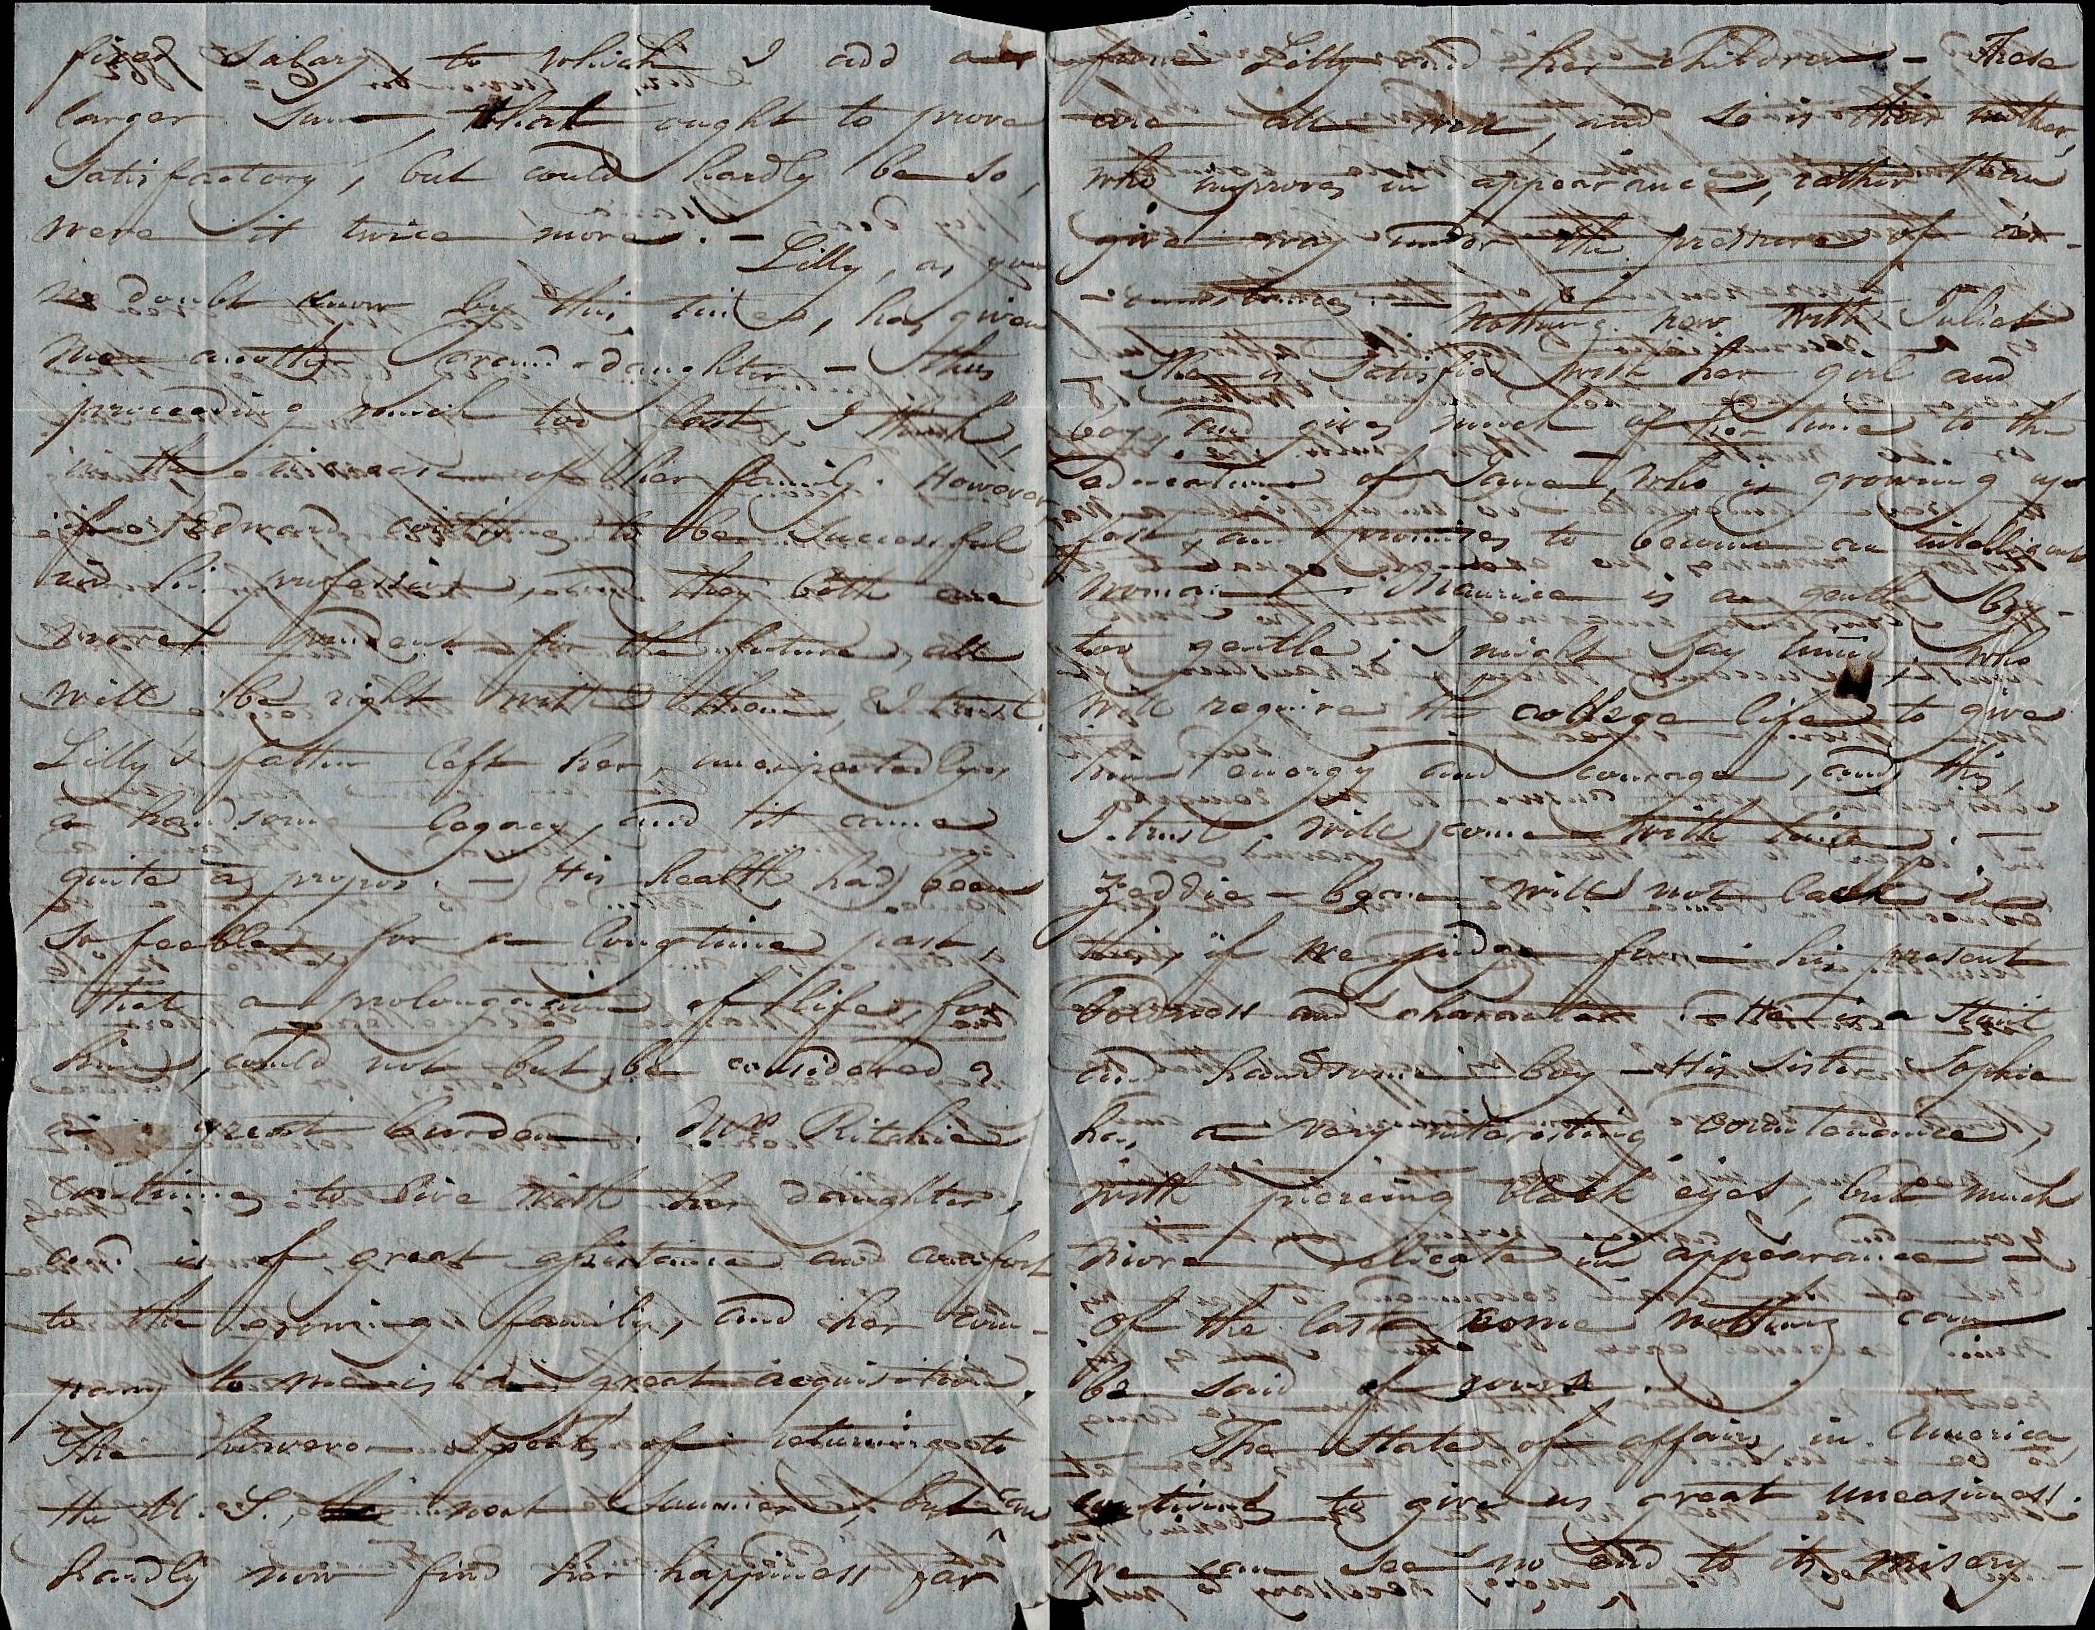 fixed salary, to which I add a
larger sum, that ought to prove
satisfactory, but could hardly be so,
were it twice more. —
Lilly, as you
no doubt know by this time, has given
me another grand-daughter — thus
proceeding much too fast, I think,
in the increase of her family. However
if Edward continues to be successful
in his profession, and they both are
more prudent for the future, all
will be right with them, I trust.
Lilly's father left her, unexpectedly,
a handsome legacy, and it came
quite à propos. — His health had been
so feeble for a long time past,
that a prolongation of life, for
him, could not but be considered
a great burden. Mrs Ritchie
continues to live with her daughter,
and is of great assistance and comfort
to the growing family, and her com-
pany to me is a great acquisition.
She however speaks of returning to
the U. S., next summer, but can
hardly now find her happiness far
from Lilly and her children — These
are all well, and so is their mother,
who improves in appearance, rather than
give way under the pressure of cir-
-cumstances. —
Nothing new with Juliet
She is satisfied with her girl and
boy, and gives much of her time to the
education of Jane, who is growing up
fast, and promises to become an intelligent
woman. Maurice is a gentle boy —
too gentle, I might say timid, who
will require the college life to give
him energy and courage, and this,
I trust, will come with time. —
Zeddie — will not lack in
this, if we judge from his present
boldness and character. — He is a stout
and handsome boy — His sister Sophie
has a very interesting countenance,
with piercing black eyes, but much
more delicate in appearance —
Of the last come nothing can
be said of yours.
The state of affairs in America
continues to give us great uneasiness.
We can see no end to its misery —